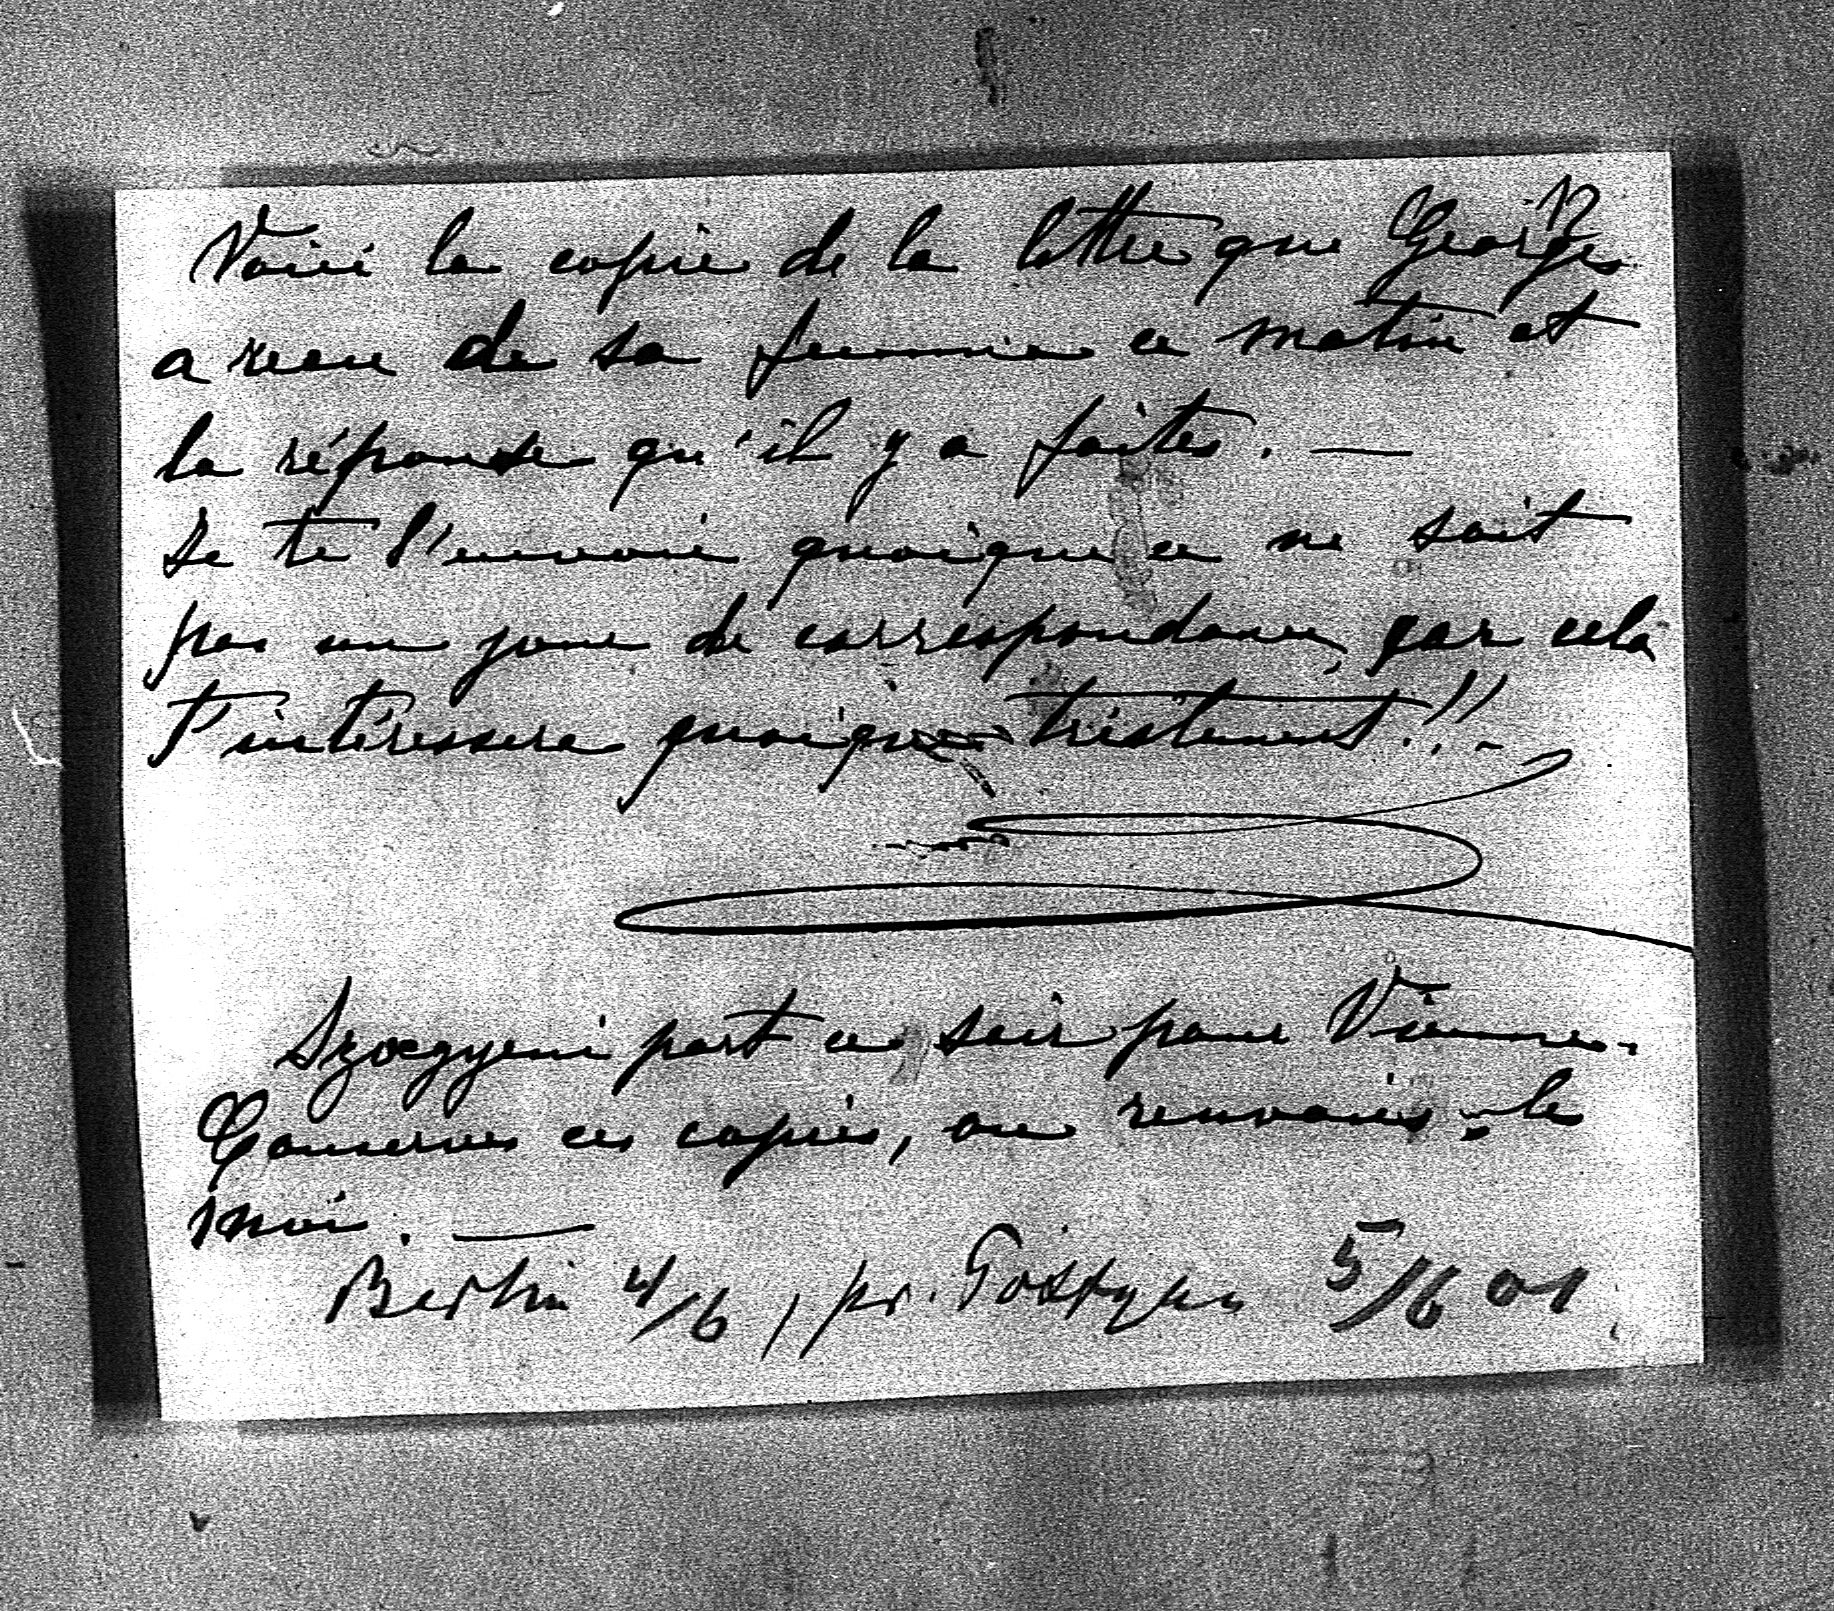 Voici la copie de la lettre que Georges
a reçu de sa femme ce matin et
la réponse qu'il y a faites. —
Je te l'envoie quoique ce ne soit
pas un jour de correspondance, car cela
t'intéressera quoique tristement!! -
Szoegyeni part ce soir pour Vienne.
Conserves ces copies, ou renvoies-les
moi. —
Berlin 4/6, pr. 5/6 01